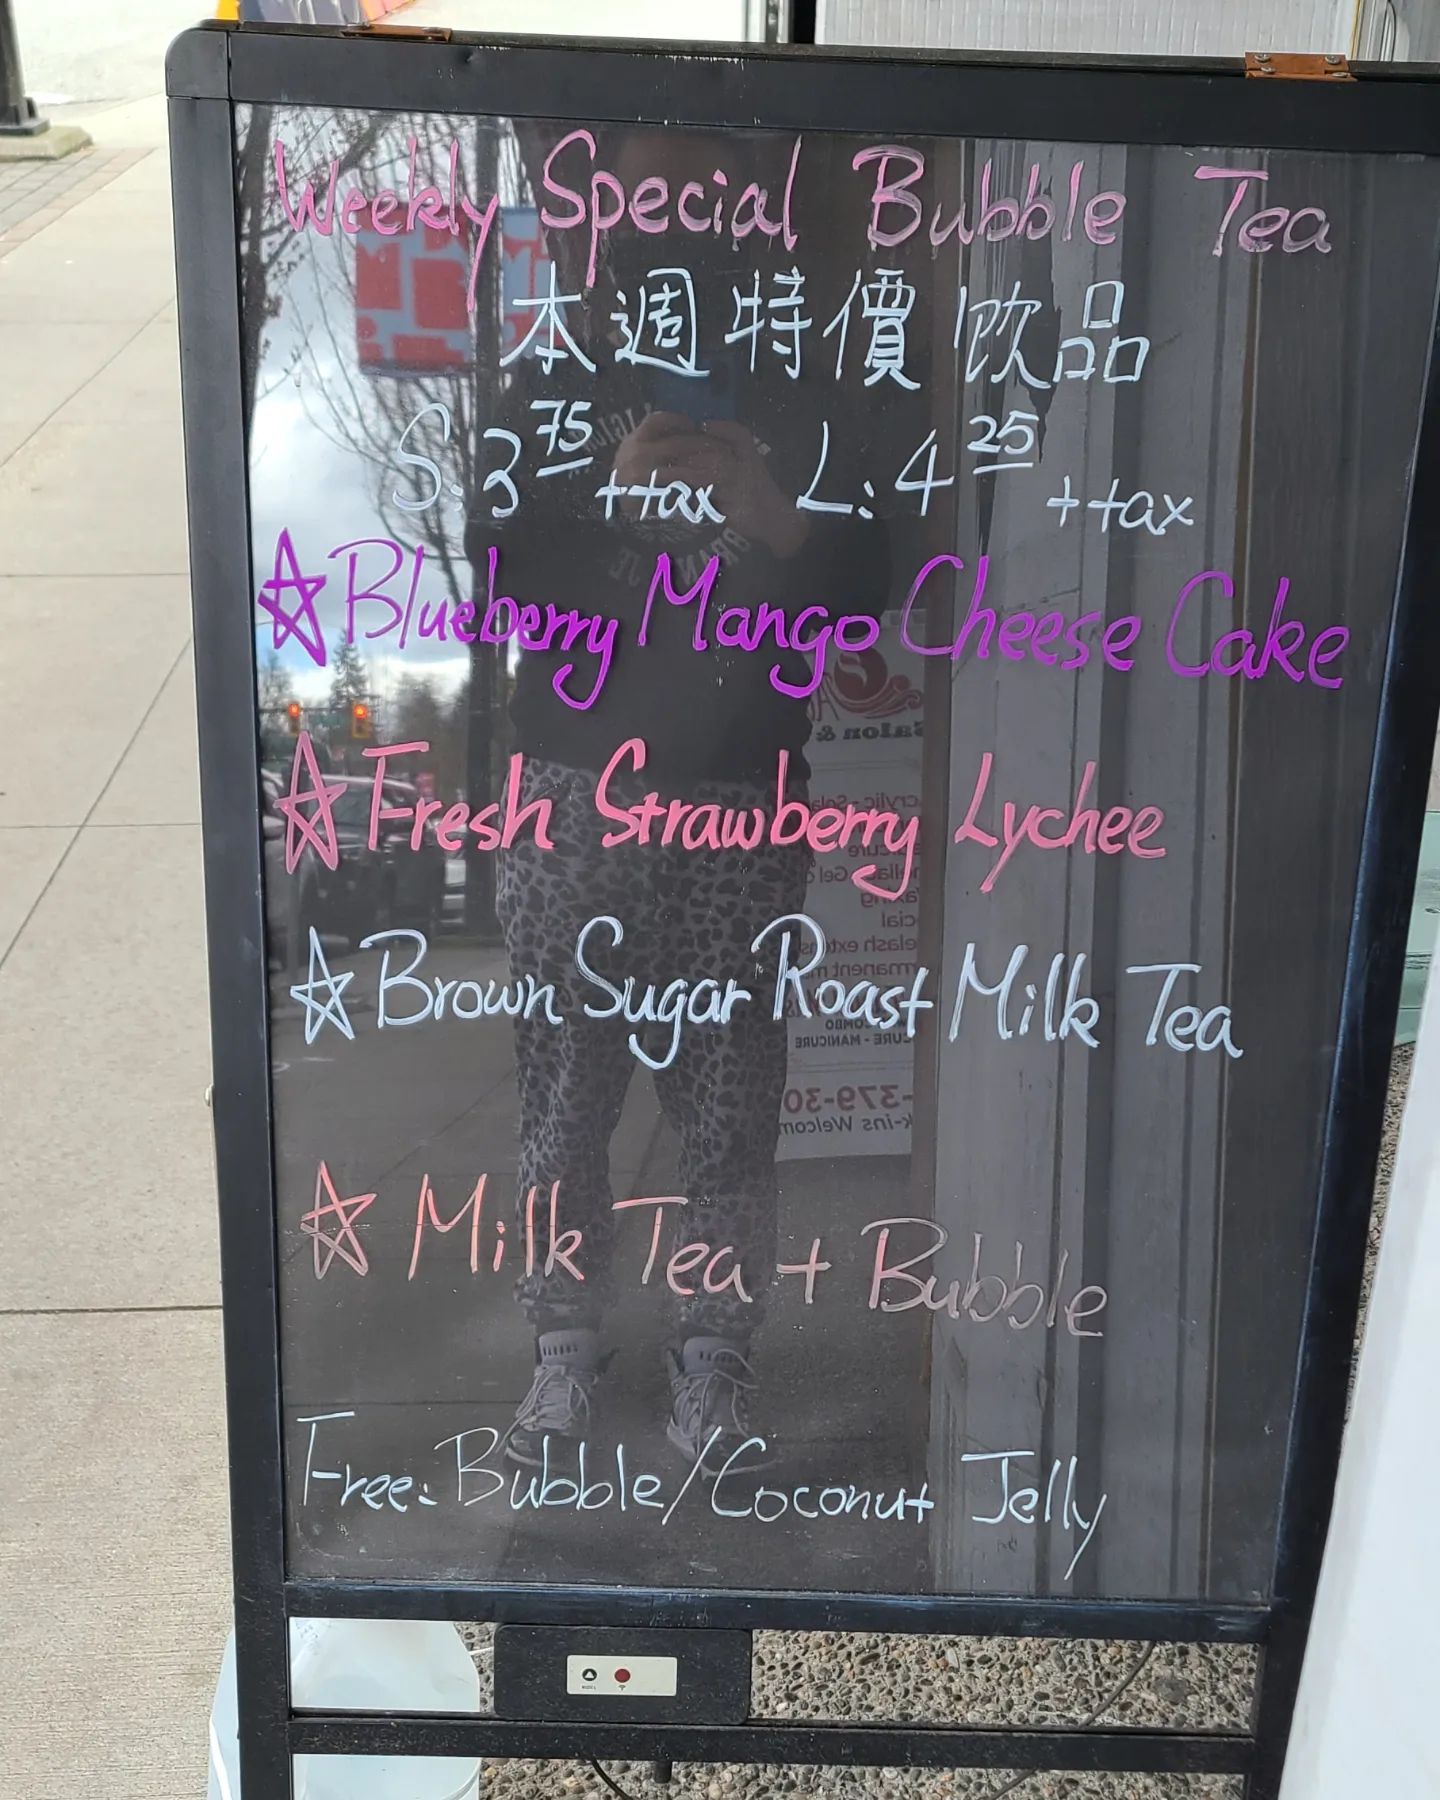 Weekly Special Bubble Tea
本週特價飲品
S: 3.75 + tax L: 4.25 + tax
☆ Blueberry Mango Cheese Cake
☆ Fresh Strawberry Lychee
☆ Brown Sugar Roast Milk Tea
☆ Milk Tea + Bubble
Free: Bubble/Coconut Jelly